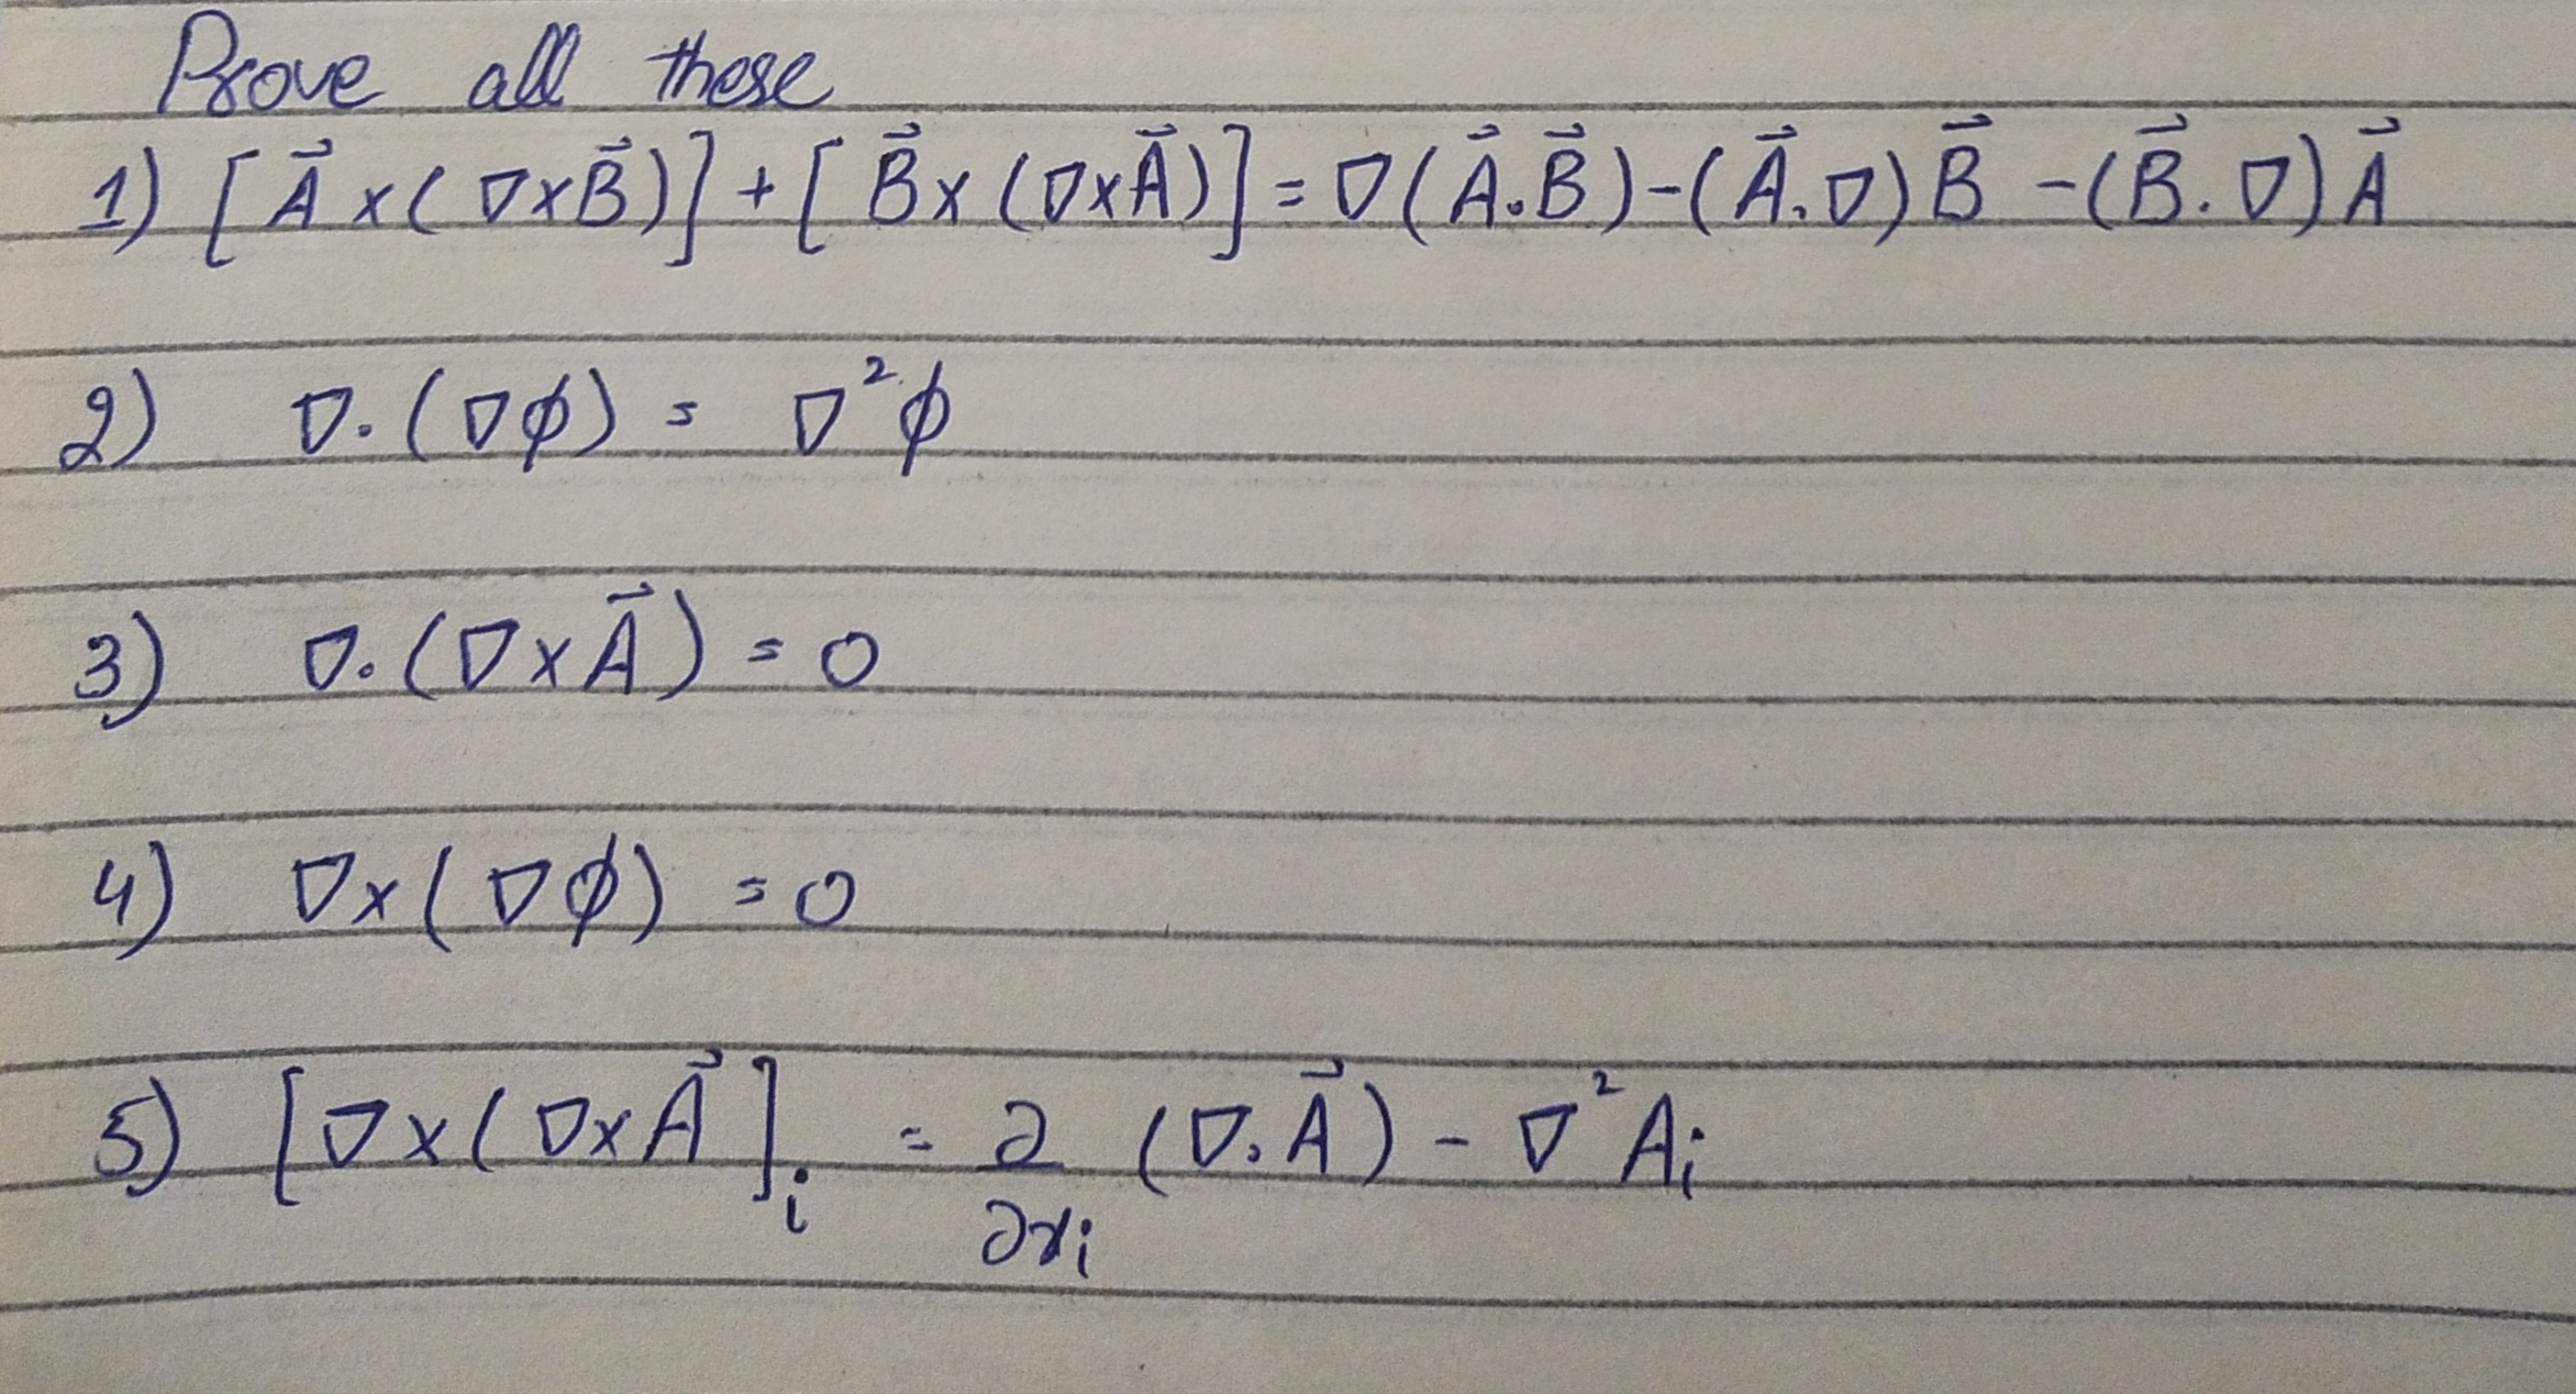 Prove all these
1) [A⃗ x (∇xB⃗)] + [B⃗ x (∇xA⃗)] = ∇(A⃗.B⃗) - (A⃗.∇)B⃗ - (B⃗.∇)A⃗
2) ∇.(∇ϕ) = ∇²ϕ
3) ∇.(∇xA⃗) = 0
4) ∇x(∇ϕ) = 0
5) [∇x(∇xA⃗]ᵢ = ∂/∂xᵢ (∇.A⃗) - ∇²Aᵢ